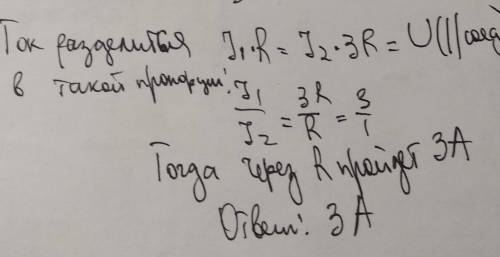 Ток разделится J₁·R = J₂·3R = U (|| соед
в такой пропорции:
J₁/J₂ = 3R/R = 3/1
Тогда через R пройдёт 3A
Ответ: 3A